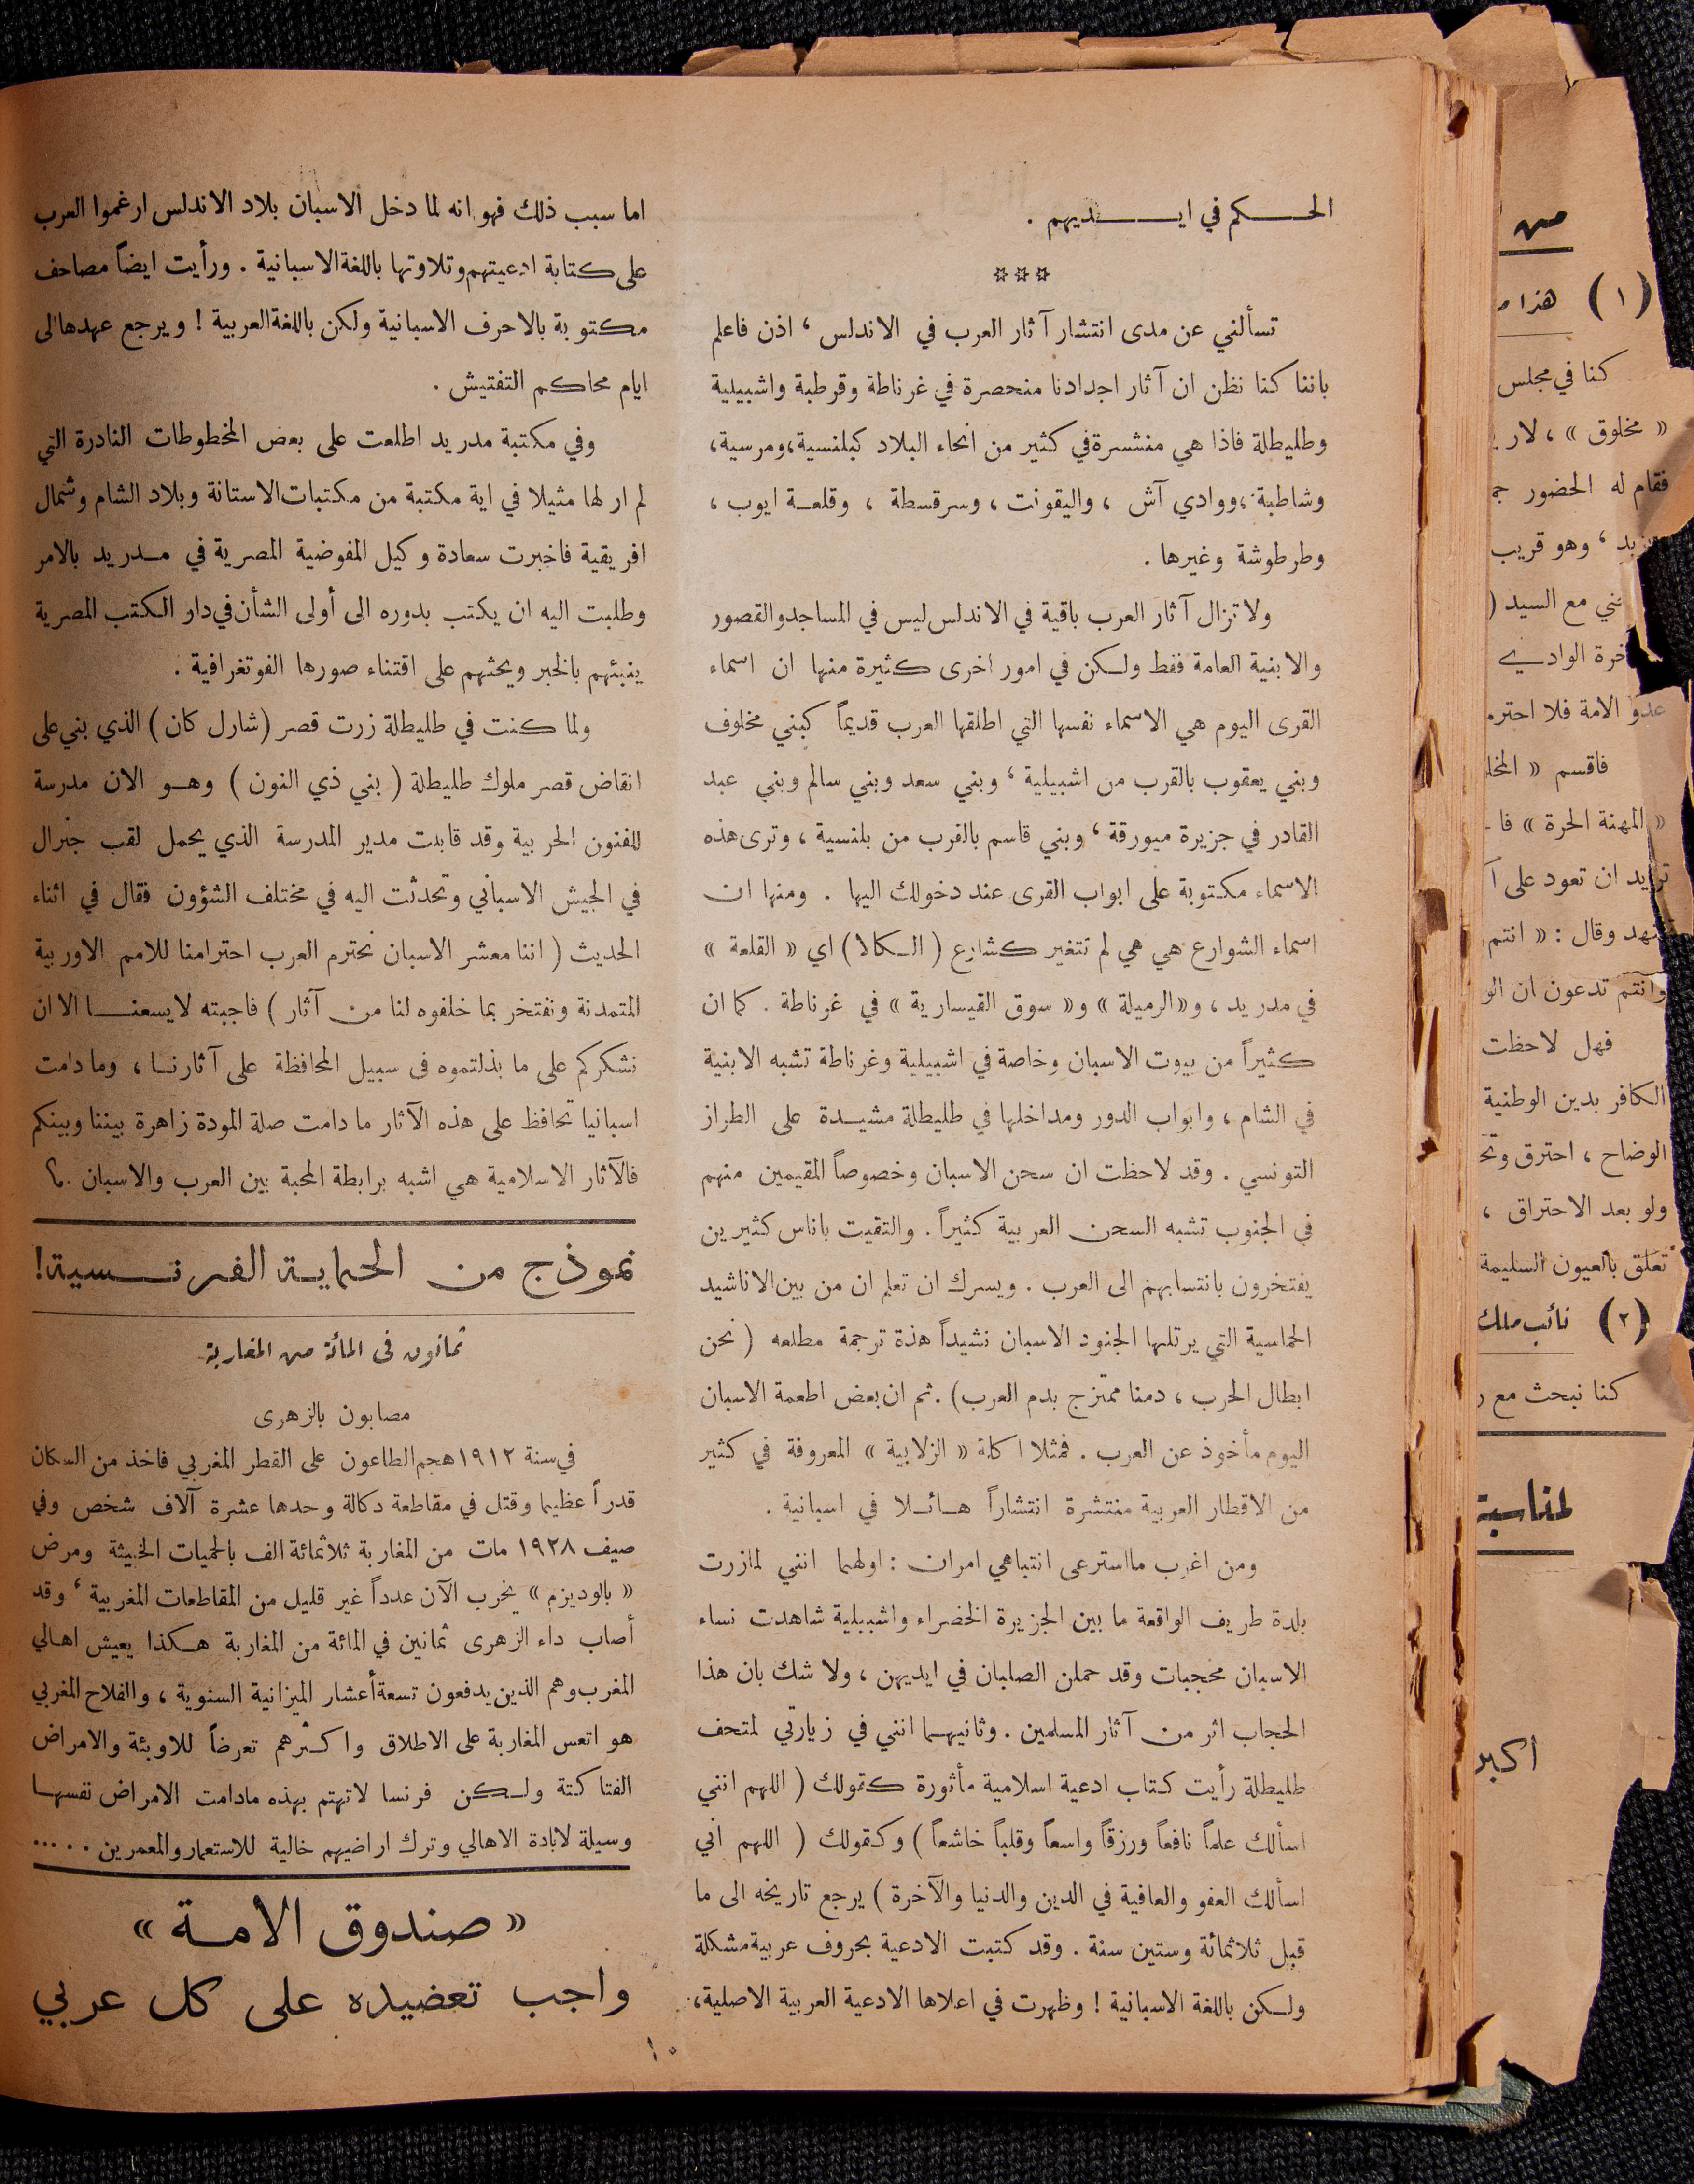 الحكم في ايديهم .
***
تسألني عن مدى انتشار آثار العرب في الاندلس ، اذن فاعلم
باننا كنا نظن ان آثار اجدادنا منحصرة في غرناطة وقرطبة واشبيلية
وطليطلة فاذا هي منتشرة في كثير من انحاء البلاد كبلنسية ، ومرسية ،
وشاطبة ، ووادي آش ، واليقونت ، وسرقسطة ، وقلعة ايوب ،
وطرطوشة وغيرها .
ولا تزال آثار العرب باقية في الاندلس ليس في المساجد والقصور
والابنية العامة فقط ولكن في امور اخرى كثيرة منها ان اسماء
القرى اليوم هي الاسماء نفسها التي اطلقها العرب قديماً كبني مخلوف
وبني يعقوب بالقرب من اشبيلية ، وبني سعد وبني سالم وبني عبد
القادر في جزيرة ميورقة ، وبني قاسم بالقرب من بلنسية ، وترى هذه
الاسماء مكتوبة على ابواب القرى عند دخولك اليها . ومنها ان
اسماء الشوارع هي هي لم تتغير كشارع ( الكالا ) اي « القلعة »
في مدريد ، و« الرميلة » و« سوق القيسارية » في غرناطة . كما ان
كثيراً من بيوت الاسبان وخاصة في اشبيلية وغرناطة تشبه الابنية
في الشام ، وابواب الدور ومداخلها في طليطلة مشيدة على الطراز
التونسي . وقد لاحظت ان سحن الاسبان وخصوصاً المقيمين منهم
في الجنوب تشبه السحن العربية كثيراً . والتقيت باناس كثيرين
يفتخرون بانتسابهم الى العرب . ويسرك ان تعلم ان من بين الاناشيد
الحماسية التي يرتلها الجنود الاسبان نشيداً هذة ترجمة مطلعه ( نحن
ابطال الحرب ، دمنا ممتزج بدم العرب ) . ثم ان بعض اطعمة الاسبان
اليوم مأخوذ عن العرب . فمثلا اكلة « الزلابية » المعروفة في كثير
من الاقطار العربية منتشرة انتشاراً هائلا في اسبانية .
ومن اغرب ما استرعى انتباهي امران : اولهما انني لما زرت
بلدة طريف الواقعة ما بين الجزيرة الخضراء واشبيلية شاهدت نساء
الاسبان محجبات وقد حملن الصلبان في ايديهن ، ولا شك بان هذا
الحجاب اثر من آثار المسلمين . وثانيهما انني في زيارتي لمتحف
طليطلة رأيت كتاب ادعية اسلامية مأثورة كقولك ( اللهم انني
اسألك علماً نافعاً ورزقاً واسعاً وقلباً خاشعاً ) وكقولك ( اللهم اني
اسألك العفو والعافية في الدين والدنيا والآخرة ) يرجع تاريخه الى ما
قبل ثلاثمائة وستين سنة . وقد كتبت الادعية بحروف عربية مشكلة
ولكن باللغة الاسبانية ! وظهرت في اعلاها الادعية العربية الاصلية ،
اما سبب ذلك فهو انه لما دخل الاسبان بلاد الاندلس ارغموا العرب
على كتابة ادعيتهم وتلاوتها باللغة الاسبانية . ورأيت ايضاً مصاحف
مكتوبة بالاحرف الاسبانية ولكن باللغة العربية ! ويرجع عهدها الى
ايام محاكم التفتيش .
وفي مكتبة مدريد اطلعت على بعض المخطوطات النادرة التي
لم ار لها مثيلا في اية مكتبة من مكتبات الاستانة وبلاد الشام وشمال
افريقية فاخبرت سعادة وكيل المفوضية المصرية في مدريد بالامر
وطلبت اليه ان يكتب بدوره الى أولى الشأن في دار الكتب المصرية
ينبئهم بالخبر ويحثهم على اقتناء صورها الفوتغرافية .
ولما كنت في طليطلة زرت قصر ( شارل كان ) الذي بني على
انقاض قصر ملوك طليطلة ( بني ذي النون ) وهو الان مدرسة
للفنون الحربية وقد قابلت مدير المدرسة الذي يحمل لقب جنرال
في الجيش الاسباني وتحدثت اليه في مختلف الشؤون فقال في اثناء
الحديث ( اننا معشر الاسبان نحترم العرب احترامنا للامم الاوربية
المتمدنة ونفتخر بما خلفوه لنا من آثار ) فاجبته لا يسعنا الا ان
نشكركم على ما بذلتموه في سبيل المحافظة على آثارنا ، وما دامت
اسبانيا تحافظ على هذه الآثار ما دامت صلة المودة زاهرة بيننا وبينكم
فالآثار الاسلامية هي اشبه برابطة المحبة بين العرب والاسبان .
نموذج من الحماية الفرنسية!
ثمانون في المائة من المغاربة
مصابون بالزهرى
في سنة ١٩١٢ هجم الطاعون على القطر المغربي فاخذ من السكان
قدراً عظيما وقتل في مقاطعة دكالة وحدها عشرة آلاف شخص وفي
صيف ١٩٢٨ مات من المغاربة ثلاثمائة الف بالحميات الخبيثة ومرض
« بالوديزم » يخرب الآن عدداً غير قليل من المقاطعات المغربية ، وقد
أصاب داء الزهرى ثمانين في المائة من المغاربة هكذا يعيش اهالي
المغرب وهم الذين يدفعون تسعة أعشار الميزانية السنوية ، والفلاح المغربي
هو اتعس المغاربة على الاطلاق واكثرهم تعرضاً للاوبئة والامراض
الفتاكتة ولكن فرنسا لا تهتم بهذه مادامت الامراض نفسها
وسيلة لابادة الاهالي وترك اراضيهم خالية للاستعمار والمعمرين .....
« صندوق الامة »
واجب تعضيده على كل عربي
١٠
من
( ١ ) هذا
كنا في مجلس
« مخلوق » ،
فقام له الحضور
، وهو قريب
مع السيد (
الوادي
عدو الامة فلا
فاقسم «
« المهنة الحرة »
تريد ان تعود على
وقال : « انتم
وانتم تدعون ان
فهل لاحظت
الكافر بدين الوطنية
الوضاح ، احترق
ولو بعد الاحتراق ،
تعلق بالعيون السليمة
( ٢ ) نائب ملك
كنا نبحث مع
لمناسبة
أكبر